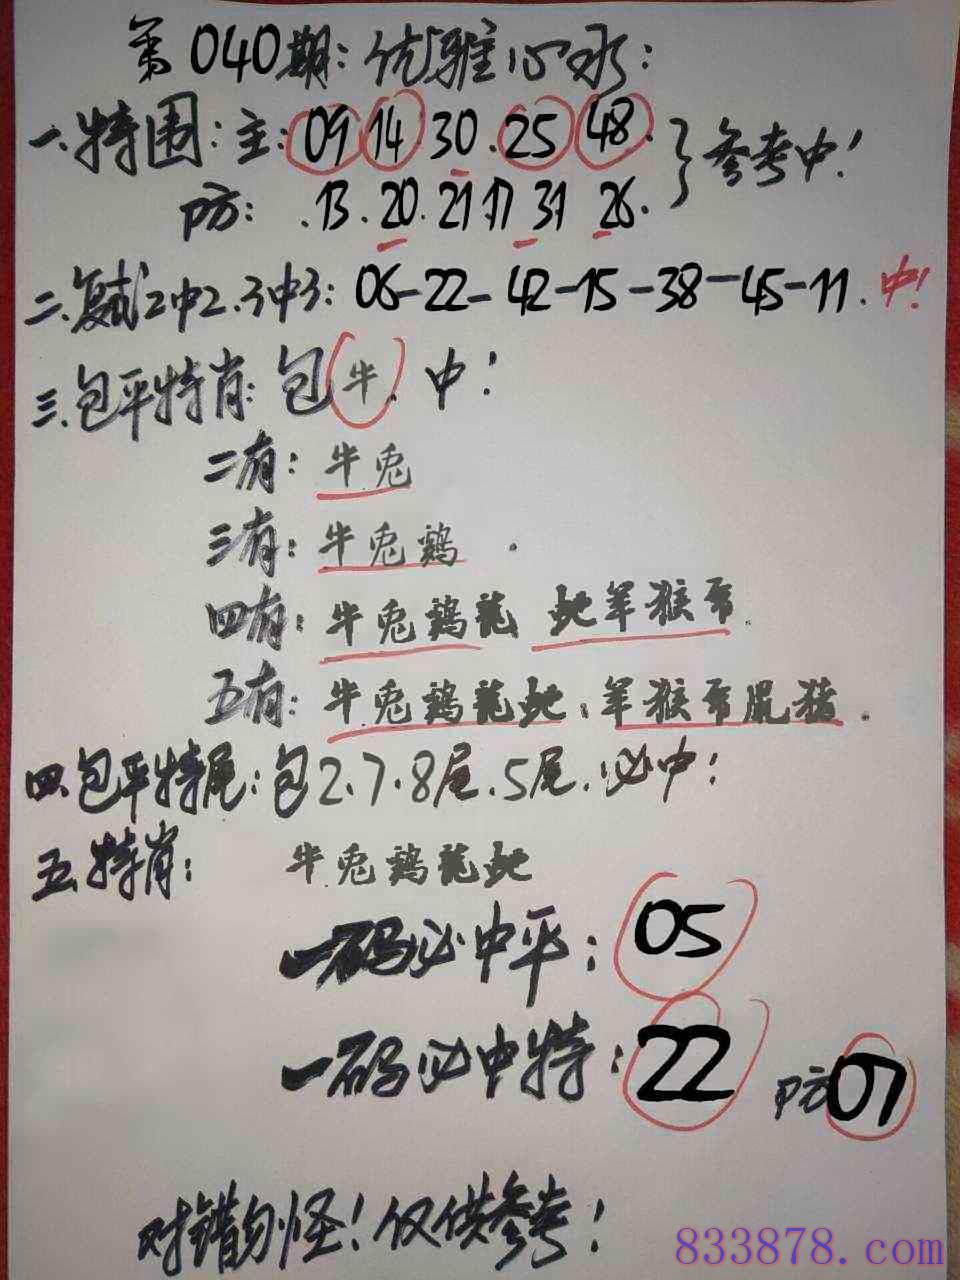 第040期：优雅心水：
一.特围：主：09 14 30.25 48.
防：.13.20.21 17 31 26.
}参考中！
二.复试2中2.3中3：06-22-42-15-38-45-11.中！
三.包平特肖：包牛.中！
二有：牛兔
三有：牛兔鸡.
四有：牛兔鸡龙 蛇羊猴
五有：牛兔鸡龙蛇.羊猴鼠猪.
四.包平特尾：包2.7.8尾.5尾.必中！
五.特肖：牛兔鸡龙蛇
一码必中平：05
一码必中特：22 防07
对错勿怪！仅供参考！
833878.com